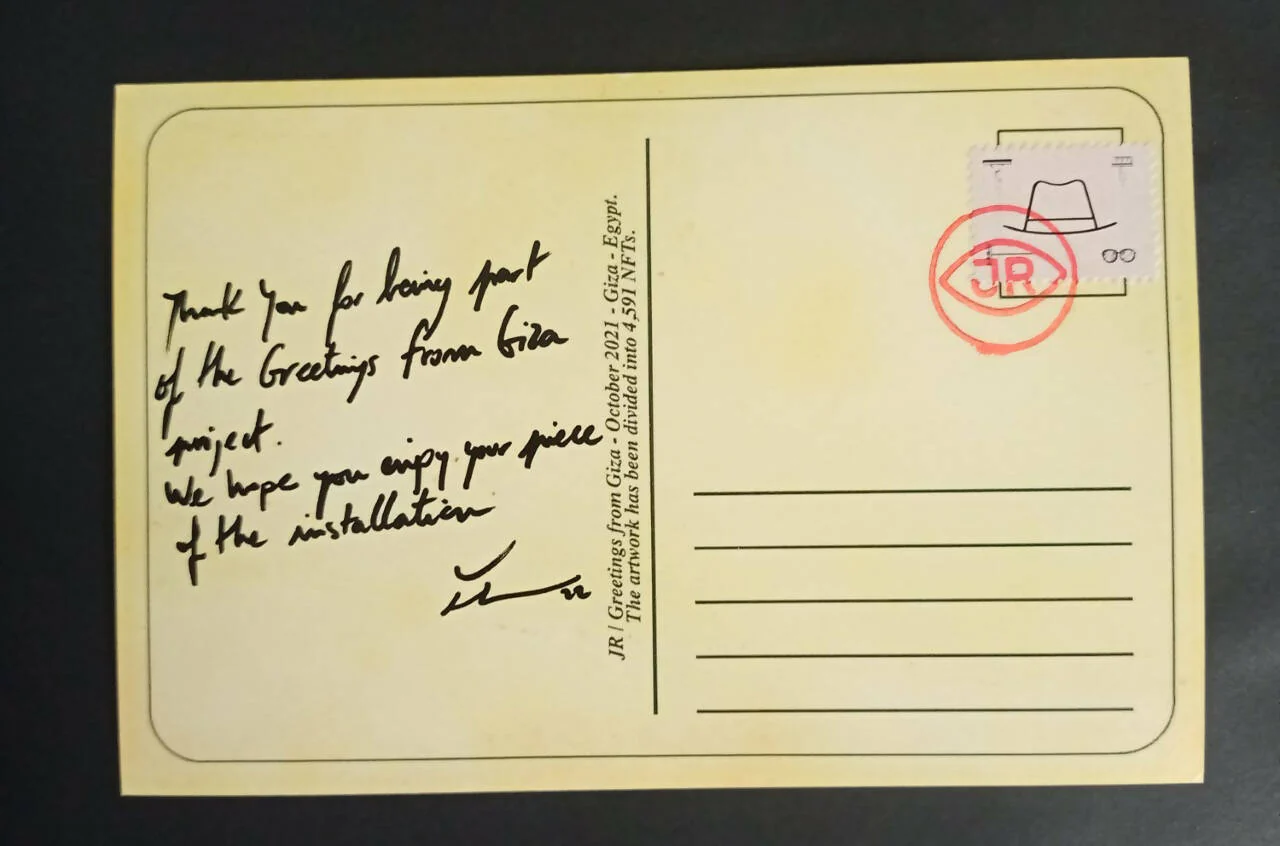 Thank You for being part
of the Greetings from Giza
project.
We hope you enjoy your piece
of the installation
22
JR | Greetings from Giza - October 2021 - Giza - Egypt.
The artwork has been divided into 4,591 NFTs.
JR